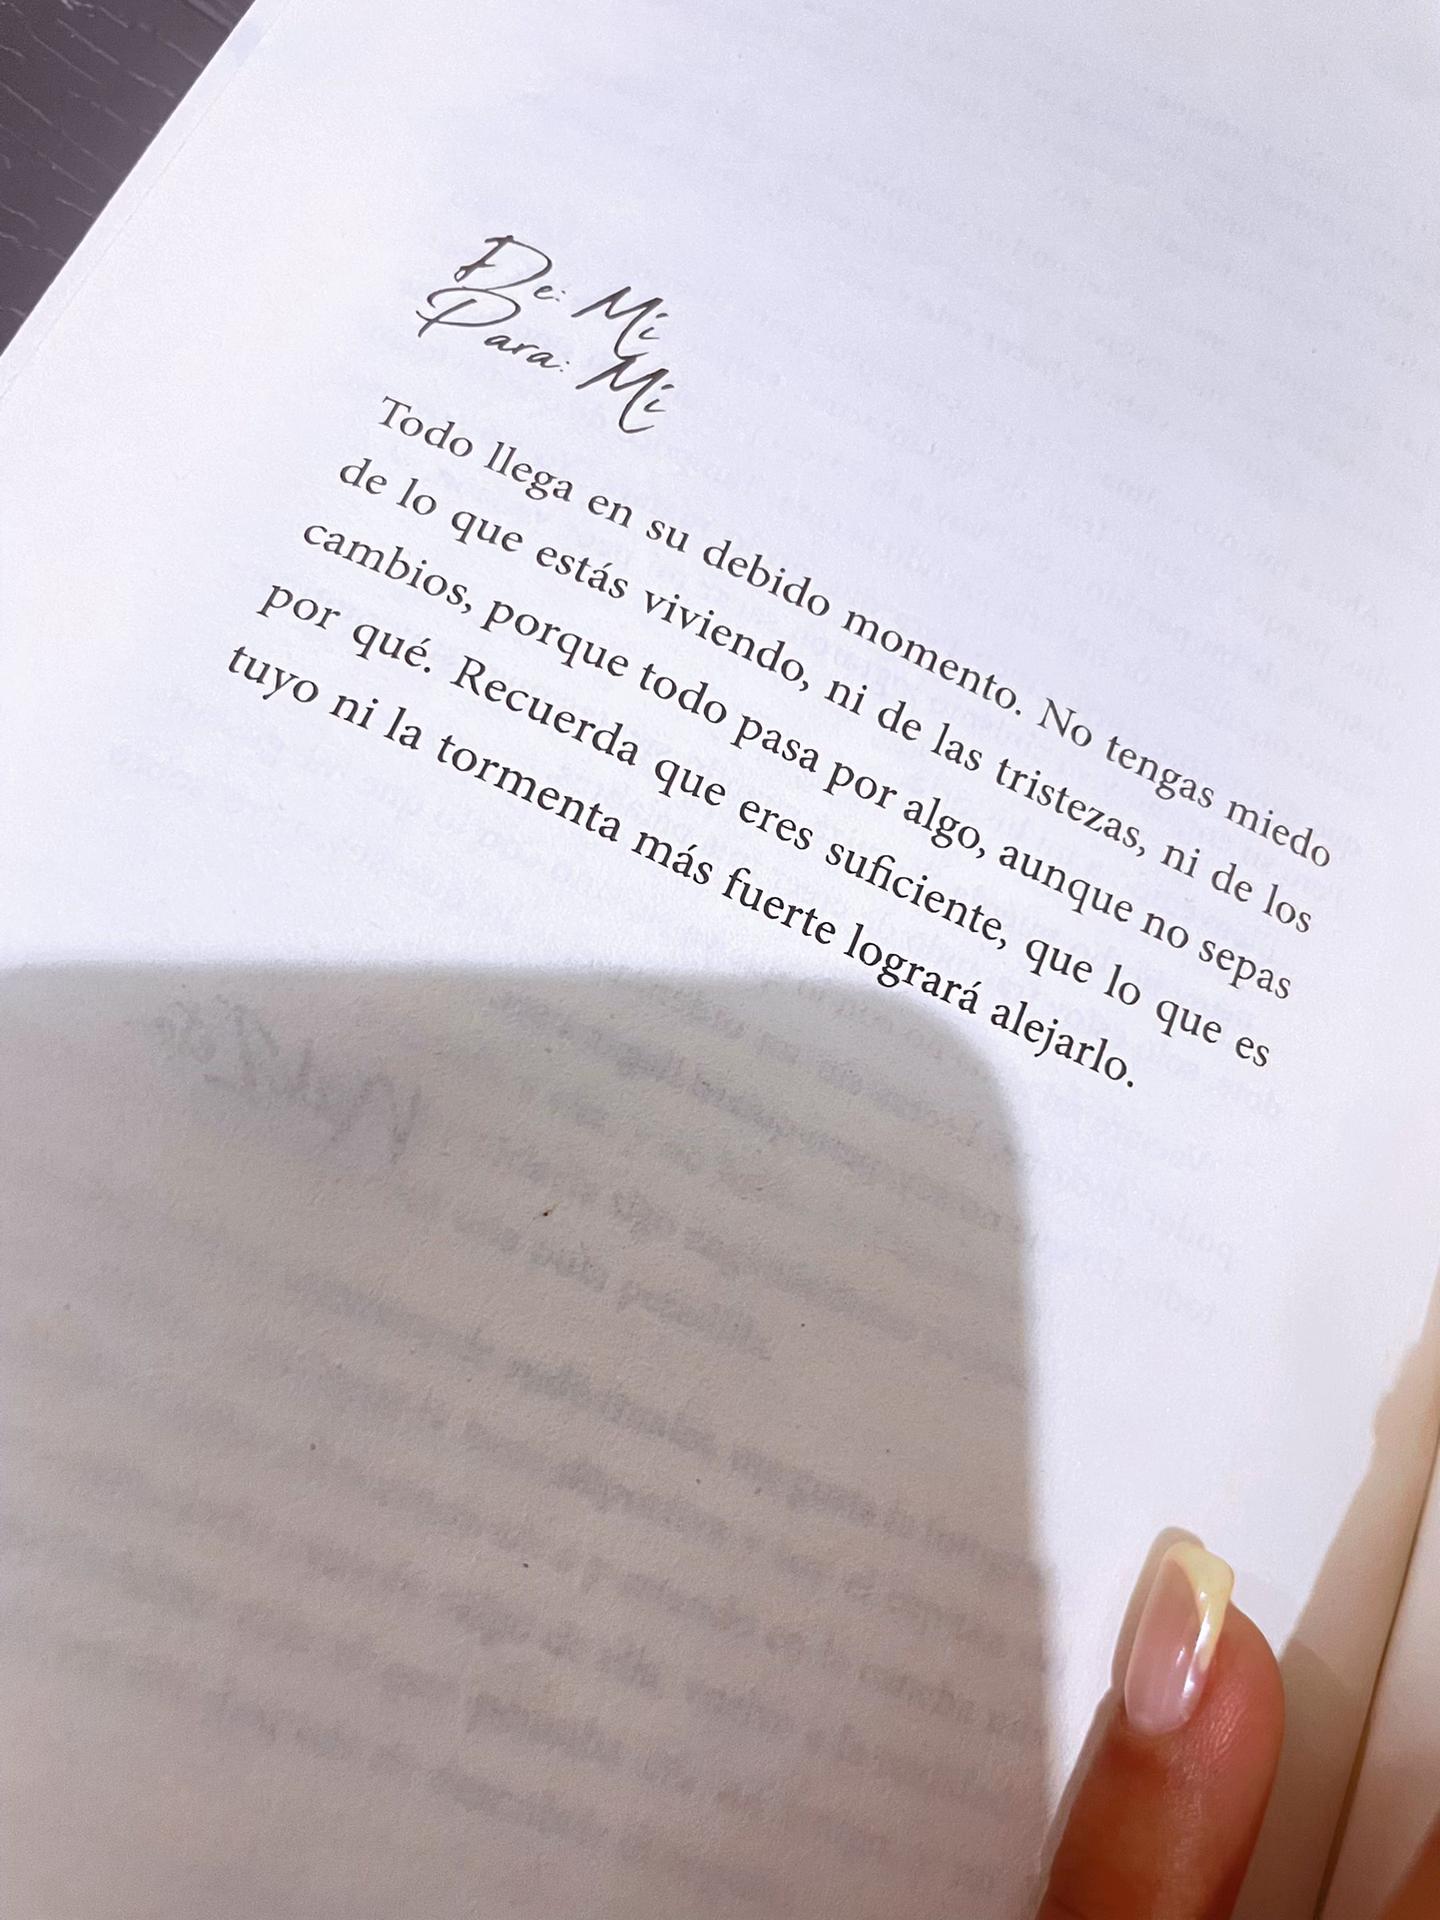 De: Mi
Para: Mi
Todo llega en su debido momento. No tengas miedo
de lo que estás viviendo, ni de las tristezas, ni de los
cambios, porque todo pasa por algo, aunque no sepas
por qué. Recuerda que eres suficiente, que lo que es
tuyo ni la tormenta más fuerte logrará alejarlo.